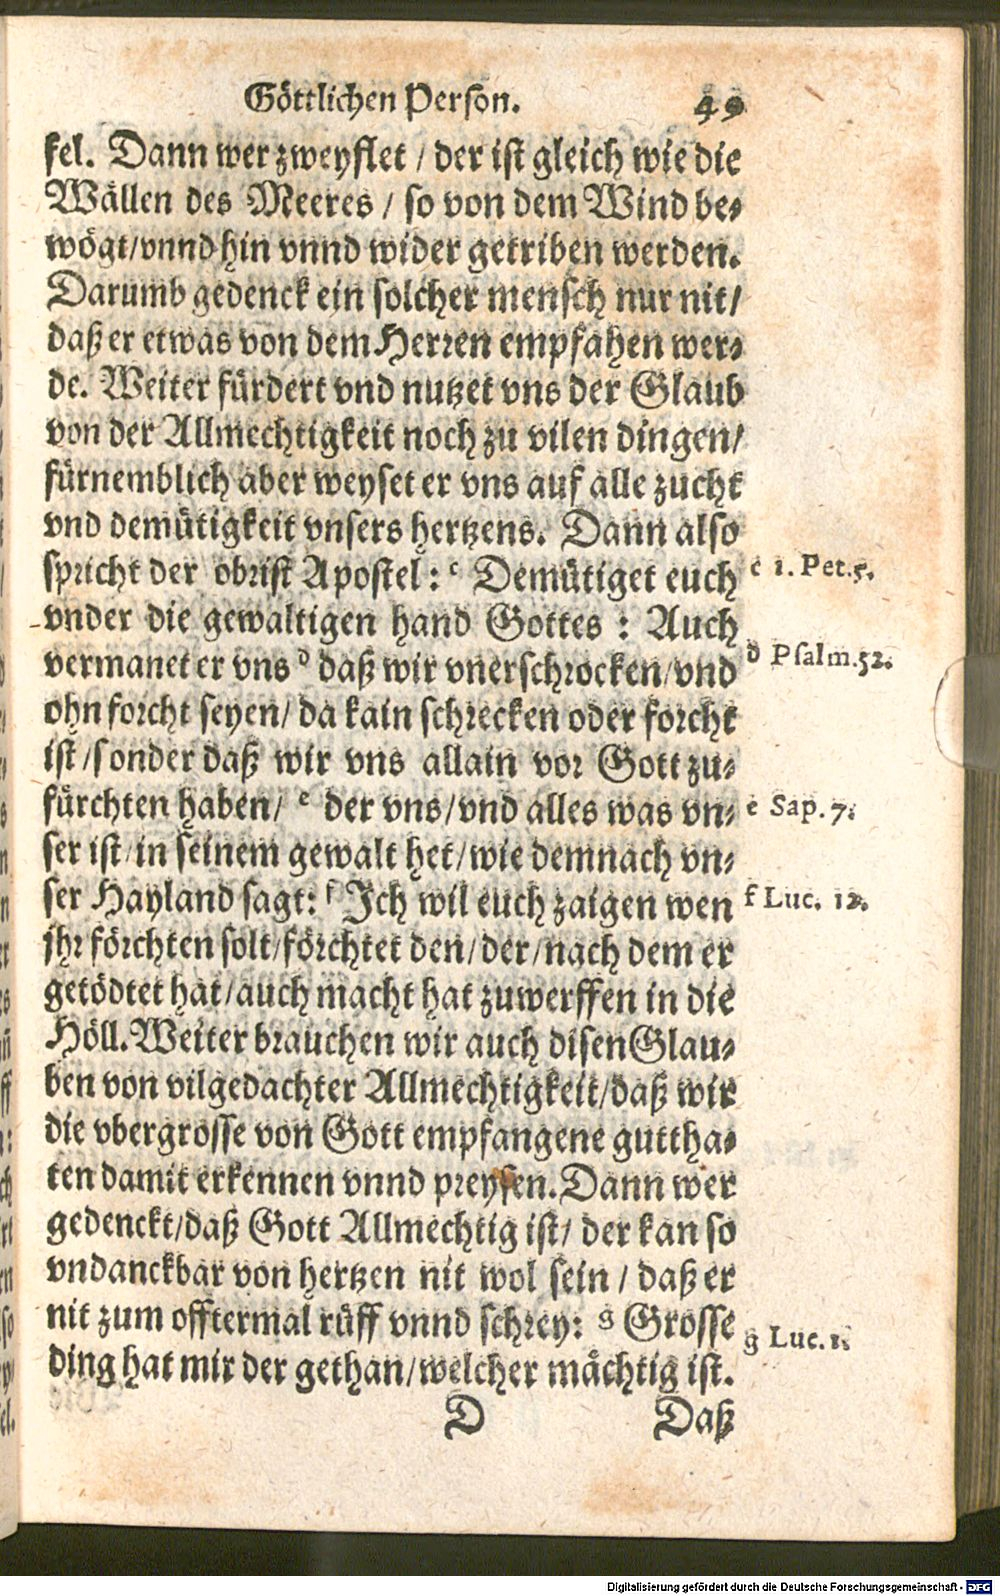 Göttlichen Person. 49
fel. Dann wer zweyflet / der ist gleich wie die
Wällen des Meeres / so von dem Wind be⸗
wögt/vnnd hin vnnd wider getriben werden.
Darumb gedenck ein solcher mensch nur nit/
daß er etwas von dem Herren empfahen wer⸗
de. Weiter fürdert vnd nutzet vns der Glaub
von der Allmechtigkeit noch zu vilen dingen/
fürnemblich aber weyset er vns auf alle zucht
vnd demütigkeit vnsers hertzens. Dann also
spricht der obrist Apostel: c Demütiget euch
c 1. Pet.5.
vnder die gewaltigen hand Gottes : Auch
vermanet er vns d daß wir vnerschrocken/vnd
d Psalm.52.
ohn forcht seyen/ da kain schrecken oder forcht
ist/sonder daß wir vns allain vor Gott zu⸗
fürchten haben/ e der vns/vnd alles was vn⸗
e Sap. 7.
ser ist/in seinem gewalt het/wie demnach vn⸗
ser Hayland sagt: f Ich wil euch zaigen wen
f Luc. 12.
jhr förchten solt/förchtet den/der/nach dem er
getödtet hat/auch macht hat zuwerffen in die
Höll. Weiter brauchen wir auch disen Glau⸗
ben von vilgedachter Allmechtigkeit/daß wir
die vbergrosse von Gott empfangene guttha⸗
ten damit erkennen vnnd preysen. Dann wer
gedenckt/daß Gott Allmechtig ist/ der kan so
vndanckbar von hertzen nit wol sein / daß er
nit zum offtermal rüff vnnd schrey: g Grosse
g Luc. 1.
ding hat mir der gethan/welcher mächtig ist.
D Daß
Digitalisierung gefördert durch die Deutsche Forschungsgemeinschaft - DFG